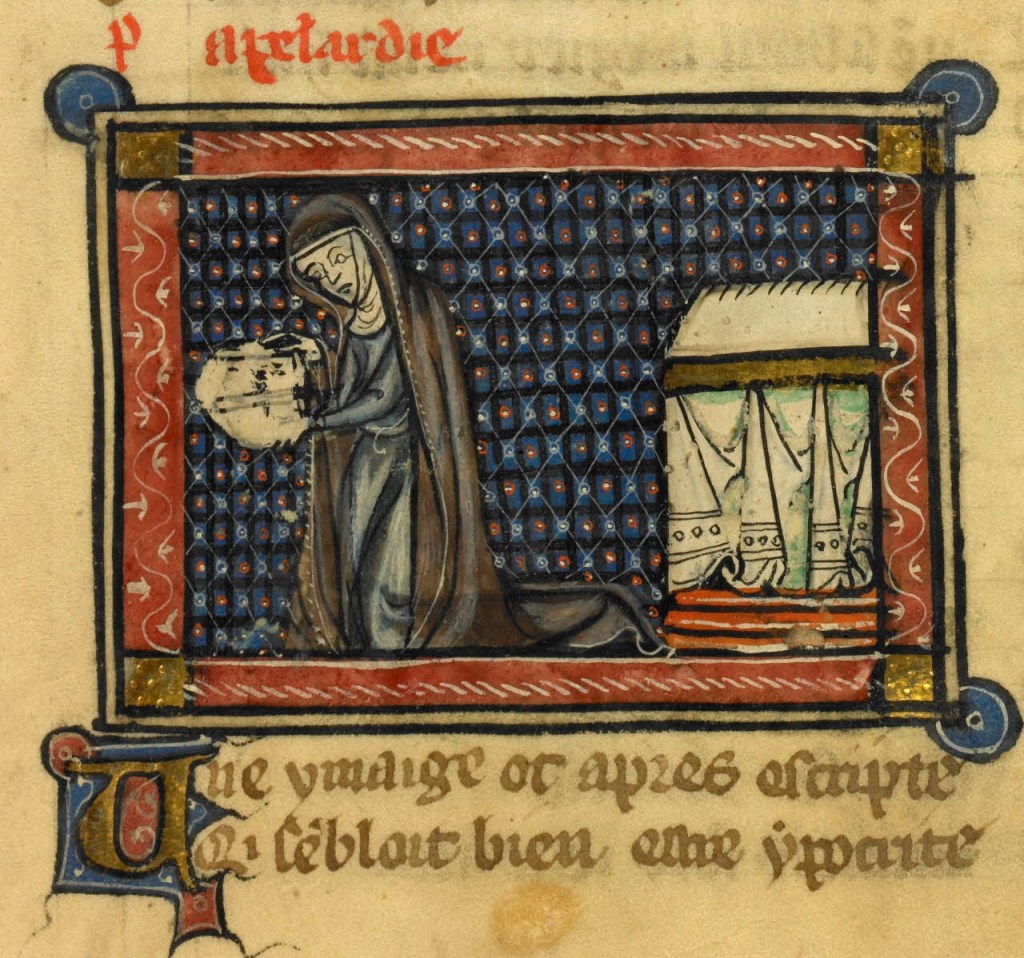 P apelardie
Une ymaige ot apres escripte
Qi sēbloit bien estre ẏpocrite